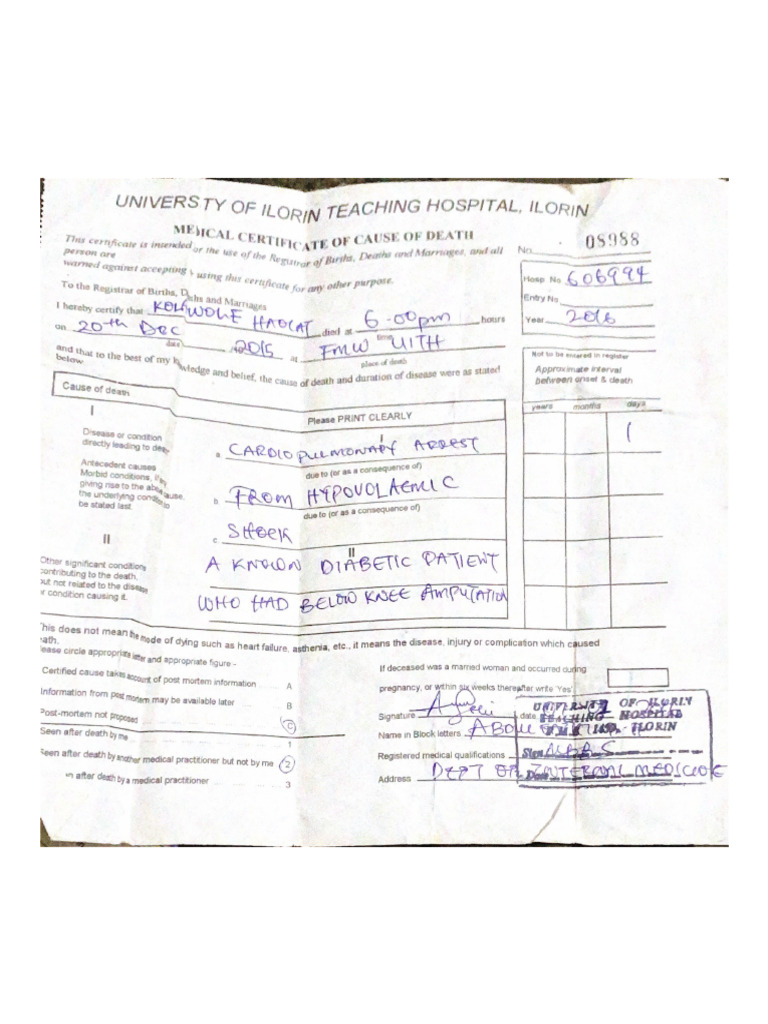 UNIVERS TY OF ILORIN TEACHING HOSPITAL, ILORIN
MEDICAL CERTIFICATE OF CAUSE OF DEATH
No. 08988
This certificate is intended or the use of the Registrar of Births, Deaths and Marriages, and all
person are
warned against accepting using this certificate for any other purpose.
Hosp. No 606994
To the Registrar of Births, D hs and Marriages
Entry No
I hereby certify that KOLAWOLE HAOLAT died at 6.00pm hours
time
Year 2016
on 20th DEC 2015 at FMW UITH
date
place of death
and that to the best of my knowledge and belief, the cause of death and duration of disease were as stated
below
Not to be entered in register
Approximate interval
between onset & death
Cause of death
Please PRINT CLEARLY
years months days
I
I
Disease or condition
directly leading to dea
a CARDIOPULMONARY ARREST
1
due to (or as a consequence of)
Antecedent causes
Morbid conditions, if any
giving rise to the above cause,
the underlying condition to
be stated last.
b FROM HYPOVOLAEMIC
due to (or as a consequence of)
c SHOCK
II
II
Other significant conditions
contributing to the death,
but not related to the disease
or condition causing it.
A KNOWN DIABETIC PATIENT
WHO HAD BELOW KNEE AMPUTATION
This does not mean the mode of dying such as heart failure, asthenia, etc., it means the disease, injury or complication which caused
eath.
lease circle appropriate letter and appropriate figure -
Certified cause takes account of post mortem information A
Information from post mortem may be available later B
Post-mortem not proposed C
Seen after death by me 1
Seen after death by another medical practitioner but not by me 2
n after death by a medical practitioner 3
If deceased was a married woman and occurred during
pregnancy, or within six weeks thereafter write 'Yes'.
Signature date
Name in Block letters
Registered medical qualifications
Address DEPT OF INTERNAL MEDICINE
UNIVERSITY OF ILORIN
TEACHING HOSPITAL
ILORIN
Sign
Date